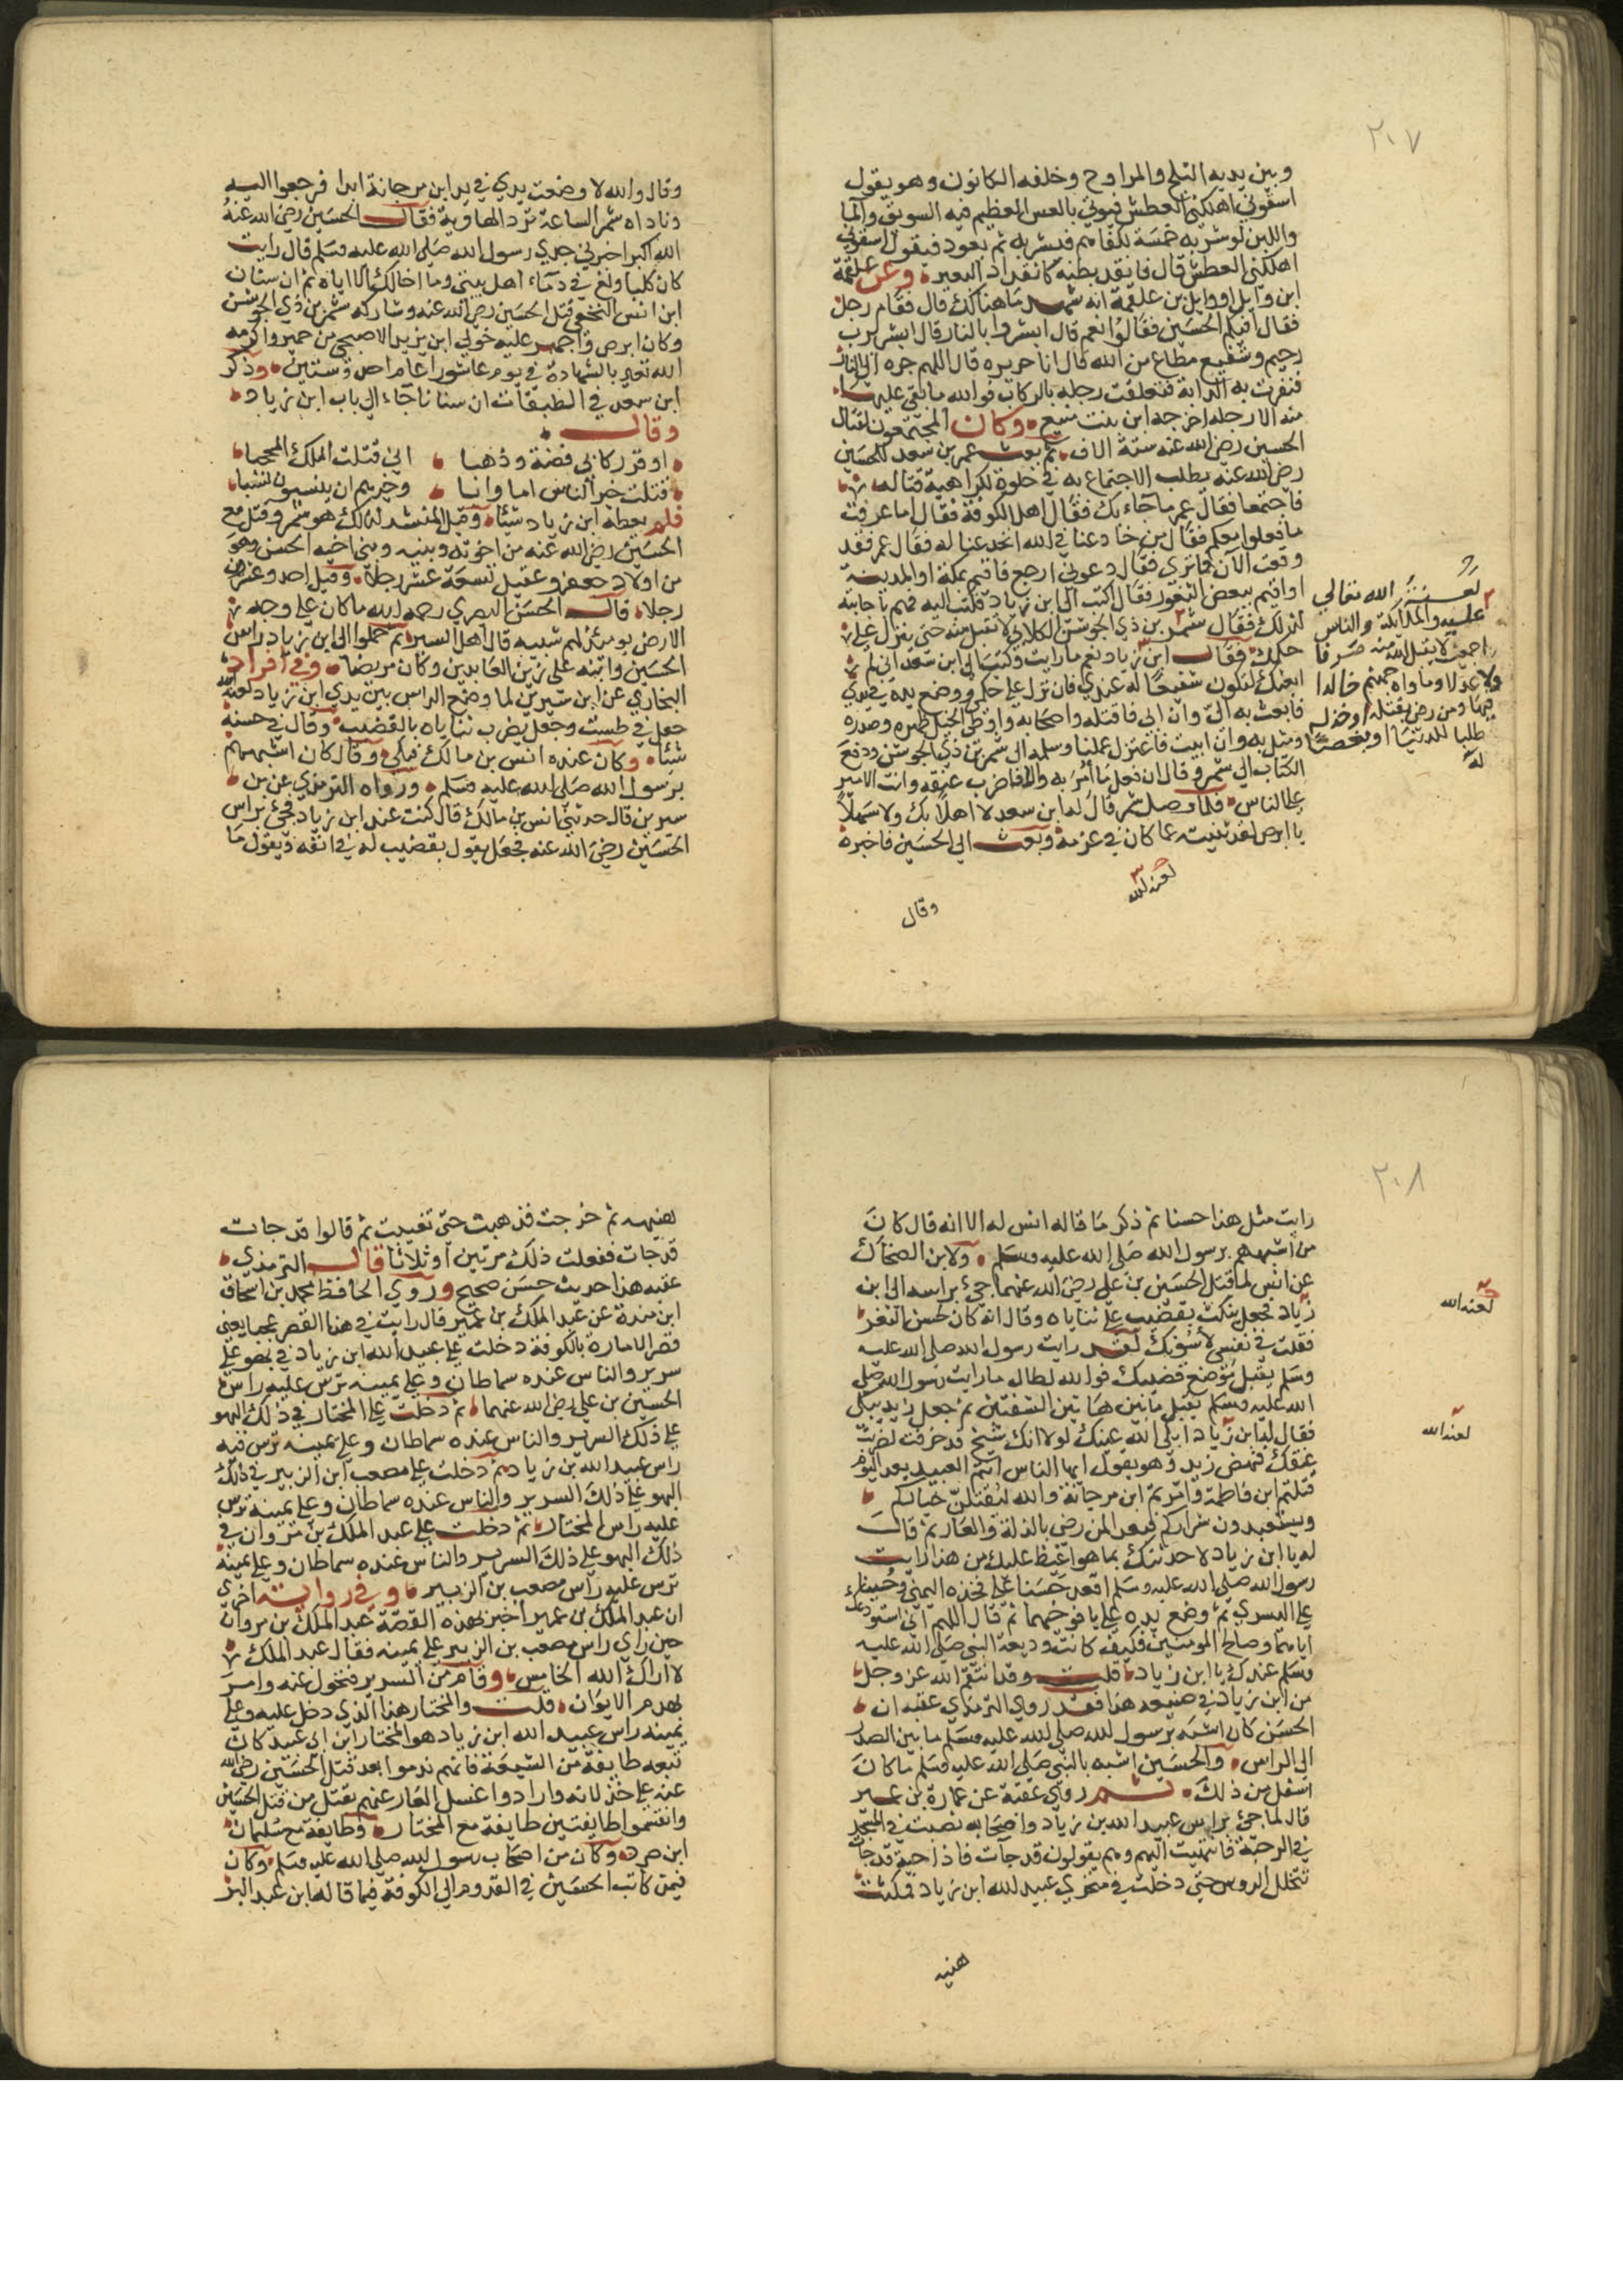 ٢٠٧
وبين يديه الثلج والمراوح وخلفه الكانون وهو يقول
اسقوني اهلكني العطش فيوتي بالعس العظيم فيه السويق والما
واللبن لو شربه خمسة لكفاهم فيشربه ثم يعود فيقول اسقوني
اهلكني العطش قال فانقد بطنه كانقداد البعير وعن علقمة
ابن وايل او وايل بن علقمة انه شهد ما هنالك قال فقام رجل
فقال افيكم الحسين فقالوا نعم قال ابشروا بالنار قال ابشر برب
رحيم وشفيع مطاع من الله قال انا حريره قال اللهم جره الى النار
فنفرت به الدابة فتعلقت رجله بالركاب فوالله ما بقي عليها
منه الا رجله اخرجه ابن بنت منيع وكان المجتمعون لقتال
الحسين رضي الله عنه ستة الاف ثم بعث عمر بن سعد للحسين
رضي الله عنه يطلب الاجتماع به في خلوة لكراهية قتاله
فاجتمعا فقال عمر ما جاء بك فقال اهل الكوفة فقال اما عرفت
ما فعلوا معكم فقال من خادعنا في الله انخدعنا له فقال عمر فقد
وقعت الآن فما ترى فقال دعوني ارجع فاقيم بمكة او المدينة
او اقيم ببعض الثغور فقال اكتب الى ابن زياد فكتب اليه فهم باجابته
لذلك فقال شمر بن ذي الجوشن الكلابي لا تقبل منه حتى ينزل على
حكمك فقال ابن زياد نعم ما رايت وكتب الى ابن سعد اني لم
ابعثك لتكون شفيعا له عندي فان نزل على حكمي ووضع يده في يدي
فابعث به الى وان ابى فاقتله واصحابه واوطئ الخيل ظهره وصدره
ومثل به وان ابيت فاعتزل عملنا وسلمه الى شمر بن ذي الجوشن ودفع
الكتاب الى شمر وقال ان فعل ما امر به والا فاضرب عنقه وانت الامير
على الناس فلما وصل شمر قال له ابن سعد لا اهلا بك ولا سهلا
يا ابرص لقد ثنيته عما كان في عزمه وبعث الى الحسين فاخبره
لعنة الله تعالى
عليه والملايكة والناس
اجمعين لا يقبل الله منه صرفا
ولا عدلا وماواه جهنم خالدا
فيها ومن رضي بقتله او خذله
طلبا للدنيا او بغضا
له
لعنه الله
وقال
وقال والله لا وضعت يدي في يد ابن مرجانة ابدا فرجعوا اليه
وناداه شمر الساعة ترد الهاوية فقال الحسين رضي الله عنه
الله اكبر اخبرني جدي رسول الله صلى الله عليه وسلم قال رايت
كان كلبا ولغ في دماء اهل بيتي وما اخالك الا اياه ثم ان سنان
ابن انس النخعي قتل الحسين رضي الله عنه وشاركه شمر بن ذي الجوشن
وكان ابرص واجهز عليه خولي ابن يزيد الاصبحي من حمير واكرمه
الله تعالى بالشهادة في يوم عاشورا عام احد وستين وذكر
ابن سعد في الطبقات ان سنانا جاء الى باب ابن زياد
وقال
اوقر ركابي فضة وذهبا اني قتلت الملك المحجبا
قتلت خير الناس اما وابا وخيرهم ان ينسبون نسبا
فلم يعطه ابن زياد شيئا وقيل المنشد لذلك هو شمر وقتل مع
الحسين رضي الله عنه من اخوته وبنيه وبني اخيه الحسن وهو
من اولاد جعفر وعقيل تسعة عشر رجلا وقيل احد وعشرون
رجلا قال الحسن البصري رحمه الله ما كان على وجه
الارض يومئذ لهم شبيه قال اهل السير ثم حملوا الى ابن زياد راس
الحسين وابنه علي زين العابدين وكان مريضا وفي افراد
البخاري عن ابن سيرين لما وضع الراس بين يدي ابن زياد لعنه الله
جعل في طست وجعل يضرب ثناياه بالقضيب وقال في حسنه
شيئا وكان عنده انس بن مالك فبكى وقال كان اشبههم
برسول الله صلى الله عليه وسلم ورواه الترمذي عن بن
سيرين قال حدثني انس بن مالك قال كنت عند ابن زياد فجئ براس
الحسين رضي الله عنه فجعل يقول بقضيب له في انفه ويقول ما
٢٠٨
رايت مثل هذا حسنا ثم ذكر ما قاله انس له الا انه قال كان
من اشبههم برسول الله صلى الله عليه وسلم ولابن الضحاك
عن انس لما قتل الحسين بن علي رضي الله عنهما جئ براسه الى ابن
زياد فجعل ينكث بقضيب على ثناياه وقال انه كان لحسن الثغر
فقلت في نفسي لاسوءنك لقد رايت رسول الله صلى الله عليه
وسلم يقبل موضع قضيبك فوالله لطال ما رايت رسول الله صلى
الله عليه وسلم يقبل ما بين هاتين الشفتين ثم جعل زيد يبكي
فقال له ابن زياد ابكى الله عينك لولا انك شيخ قد خرفت لضربت
عنقك فنهض زيد وهو يقول ايها الناس انتم العبيد بعد اليوم
قتلتم ابن فاطمة وامرتم ابن مرجانة والله ليقتلن خياركم
ويستعبدون شراركم فبعدا لمن رضي بالذلة والعار ثم قال
له يا ابن زياد لاحدثنك بما هو اغيظ عليك من هذا رايت
رسول الله صلى الله عليه وسلم اقعد حسنا على فخذه اليمنى وحسينا
على اليسرى ثم وضع يده على يافوخهما ثم قال اللهم اني استودعك
اياهما وصالح المومنين فكيف كانت وديعة النبي صلى الله عليه
وسلم عندك يا ابن زياد قلت وقد انتقم الله عز وجل
من ابن زياد في صنيعه هذا فقد روى الترمذي عقبه ان
الحسن كان اشبه برسول الله صلى الله عليه وسلم ما بين الصدر
الى الراس والحسين اشبه بالنبي صلى الله عليه وسلم ما كان
اسفل من ذلك ثم روى عقبه عن عمارة بن عمير
قال لما جئ براس عبيد الله بن زياد واصحابه نصبت في المسجد
في الرحبة فانتهيت اليهم وهم يقولون قد جآت فاذا حية قد جات
تتخلل الروس حتى دخلت في منخري عبيد الله ابن زياد فمكثت
لعنه الله
لعنه الله
هنيه
هنيهة ثم خرجت فذهبت حتى تغيبت ثم قالوا قد جات
قد جات ففعلت ذلك مرتين او ثلاثا قال الترمذي
عقبه هذا حديث حسن صحيح وروى الحافظ محمد بن اسحاق
ابن مندة عن عبد الملك بن عمير قال رايت في هذا القصر عجبا يعني
قصر الامارة بالكوفة دخلت على عبيد الله ابن زياد في بهو على
سرير والناس عنده سماطان وعلى يمينه ترس عليه راس
الحسين بن علي رضي الله عنهما ثم دخلت على المختار في ذلك البهو
على ذلك السرير والناس عنده سماطان وعلى يمينه ترس فيه
راس عبيد الله بن زياد ثم دخلت على مصعب ابن الزبير في ذلك
البهو على ذلك السرير والناس عنده سماطان وعلى يمينه ترس
عليه راس المختار ثم دخلت على عبد الملك بن مروان في
ذلك البهو على ذلك السرير والناس عنده سماطان وعلى يمينه
ترس عليه راس مصعب بن الزبير وفي رواية اخرى
ان عبد الملك بن عمير اخبر بهذه القصة عبد الملك بن مروان
حين راى راس مصعب بن الزبير على يمينه فقال عبد الملك
لا اراك الله الخامس وقام من السرير فتحول عنه وامر
بهدم الايوان قلت والمختار هذا الذي دخل عليه وعلى
يمينه راس عبيد الله ابن زياد هو المختار ابن ابي عبيد كان
تبعه طايفة من الشيعة فانهم ندموا بعد قتل الحسين رضي الله
عنه على خذلانه وارادوا غسل العار عنهم بقتل من قتل الحسين
وانقسموا طايفتين طايفة مع المختار وطايفة مع سليمان
ابن صرد وكان من اصحاب رسول الله صلى الله عليه وسلم وكان
فيمن كاتب الحسين في القدوم الى الكوفة فيما قاله ابن عبد البر